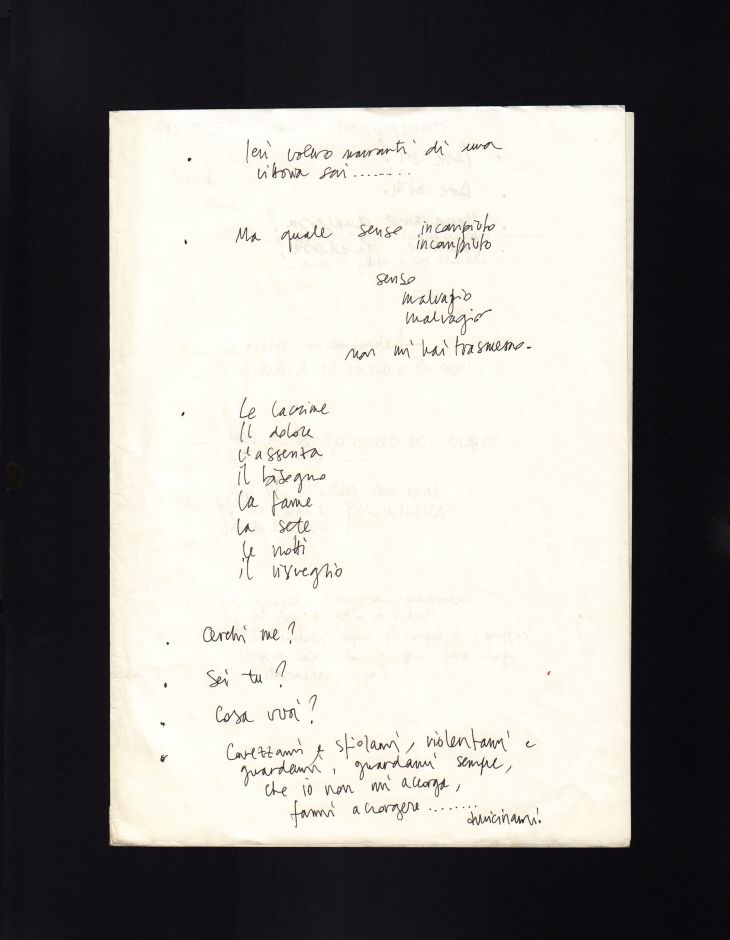 . Ieri volevo narrarti di una
vittoria sai........
. Ma quale senso incompiuto
incompiuto
senso
malvagio
malvagio
non mi hai trasmesso.
. Le lacrime
Il dolore
L'assenza
il bisogno
la fame
la sete
le notti
il risveglio
. Cerchi me?
. Sei tu?
. Cosa vuoi?
. Carezzami e sfiorami, violentami e
guardami, guardami sempre,
che io non mi accorga,
fammi accorgere ........
Avvicinami!